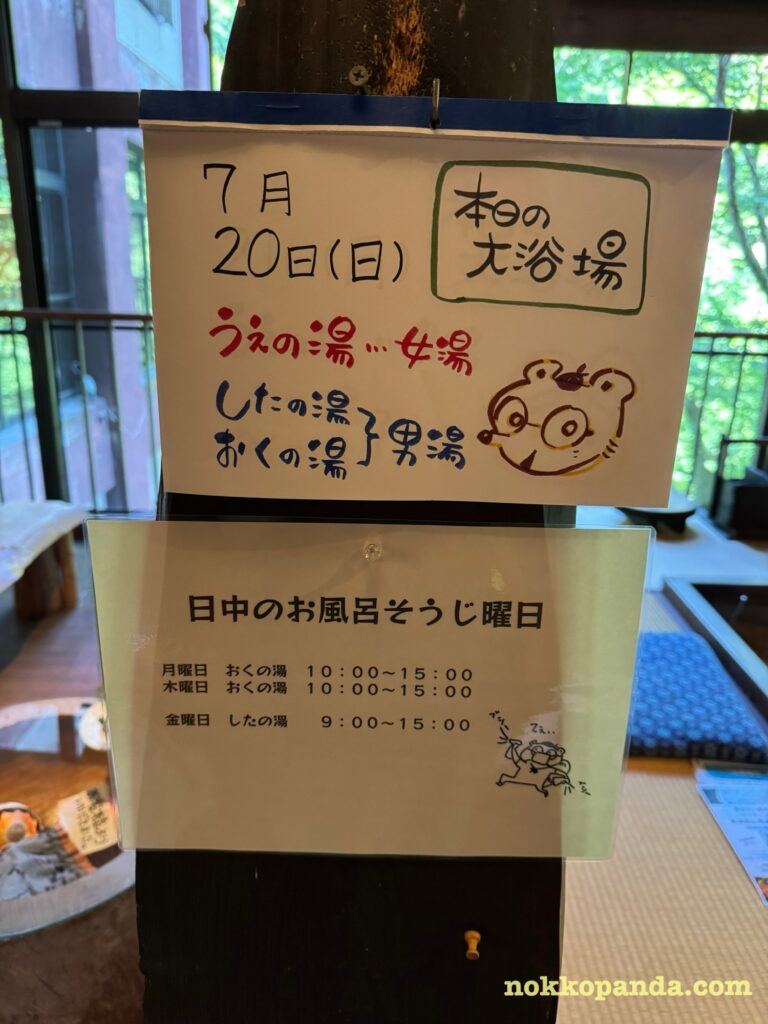 7月
20日(日)
本日の
大浴場
うえの湯…女湯
したの湯
おくの湯}男湯
日中のお風呂そうじ曜日
月曜日 おくの湯 10:00~15:00
木曜日 おくの湯 10:00~15:00
金曜日 したの湯 9:00~15:00
nokkopanda.com